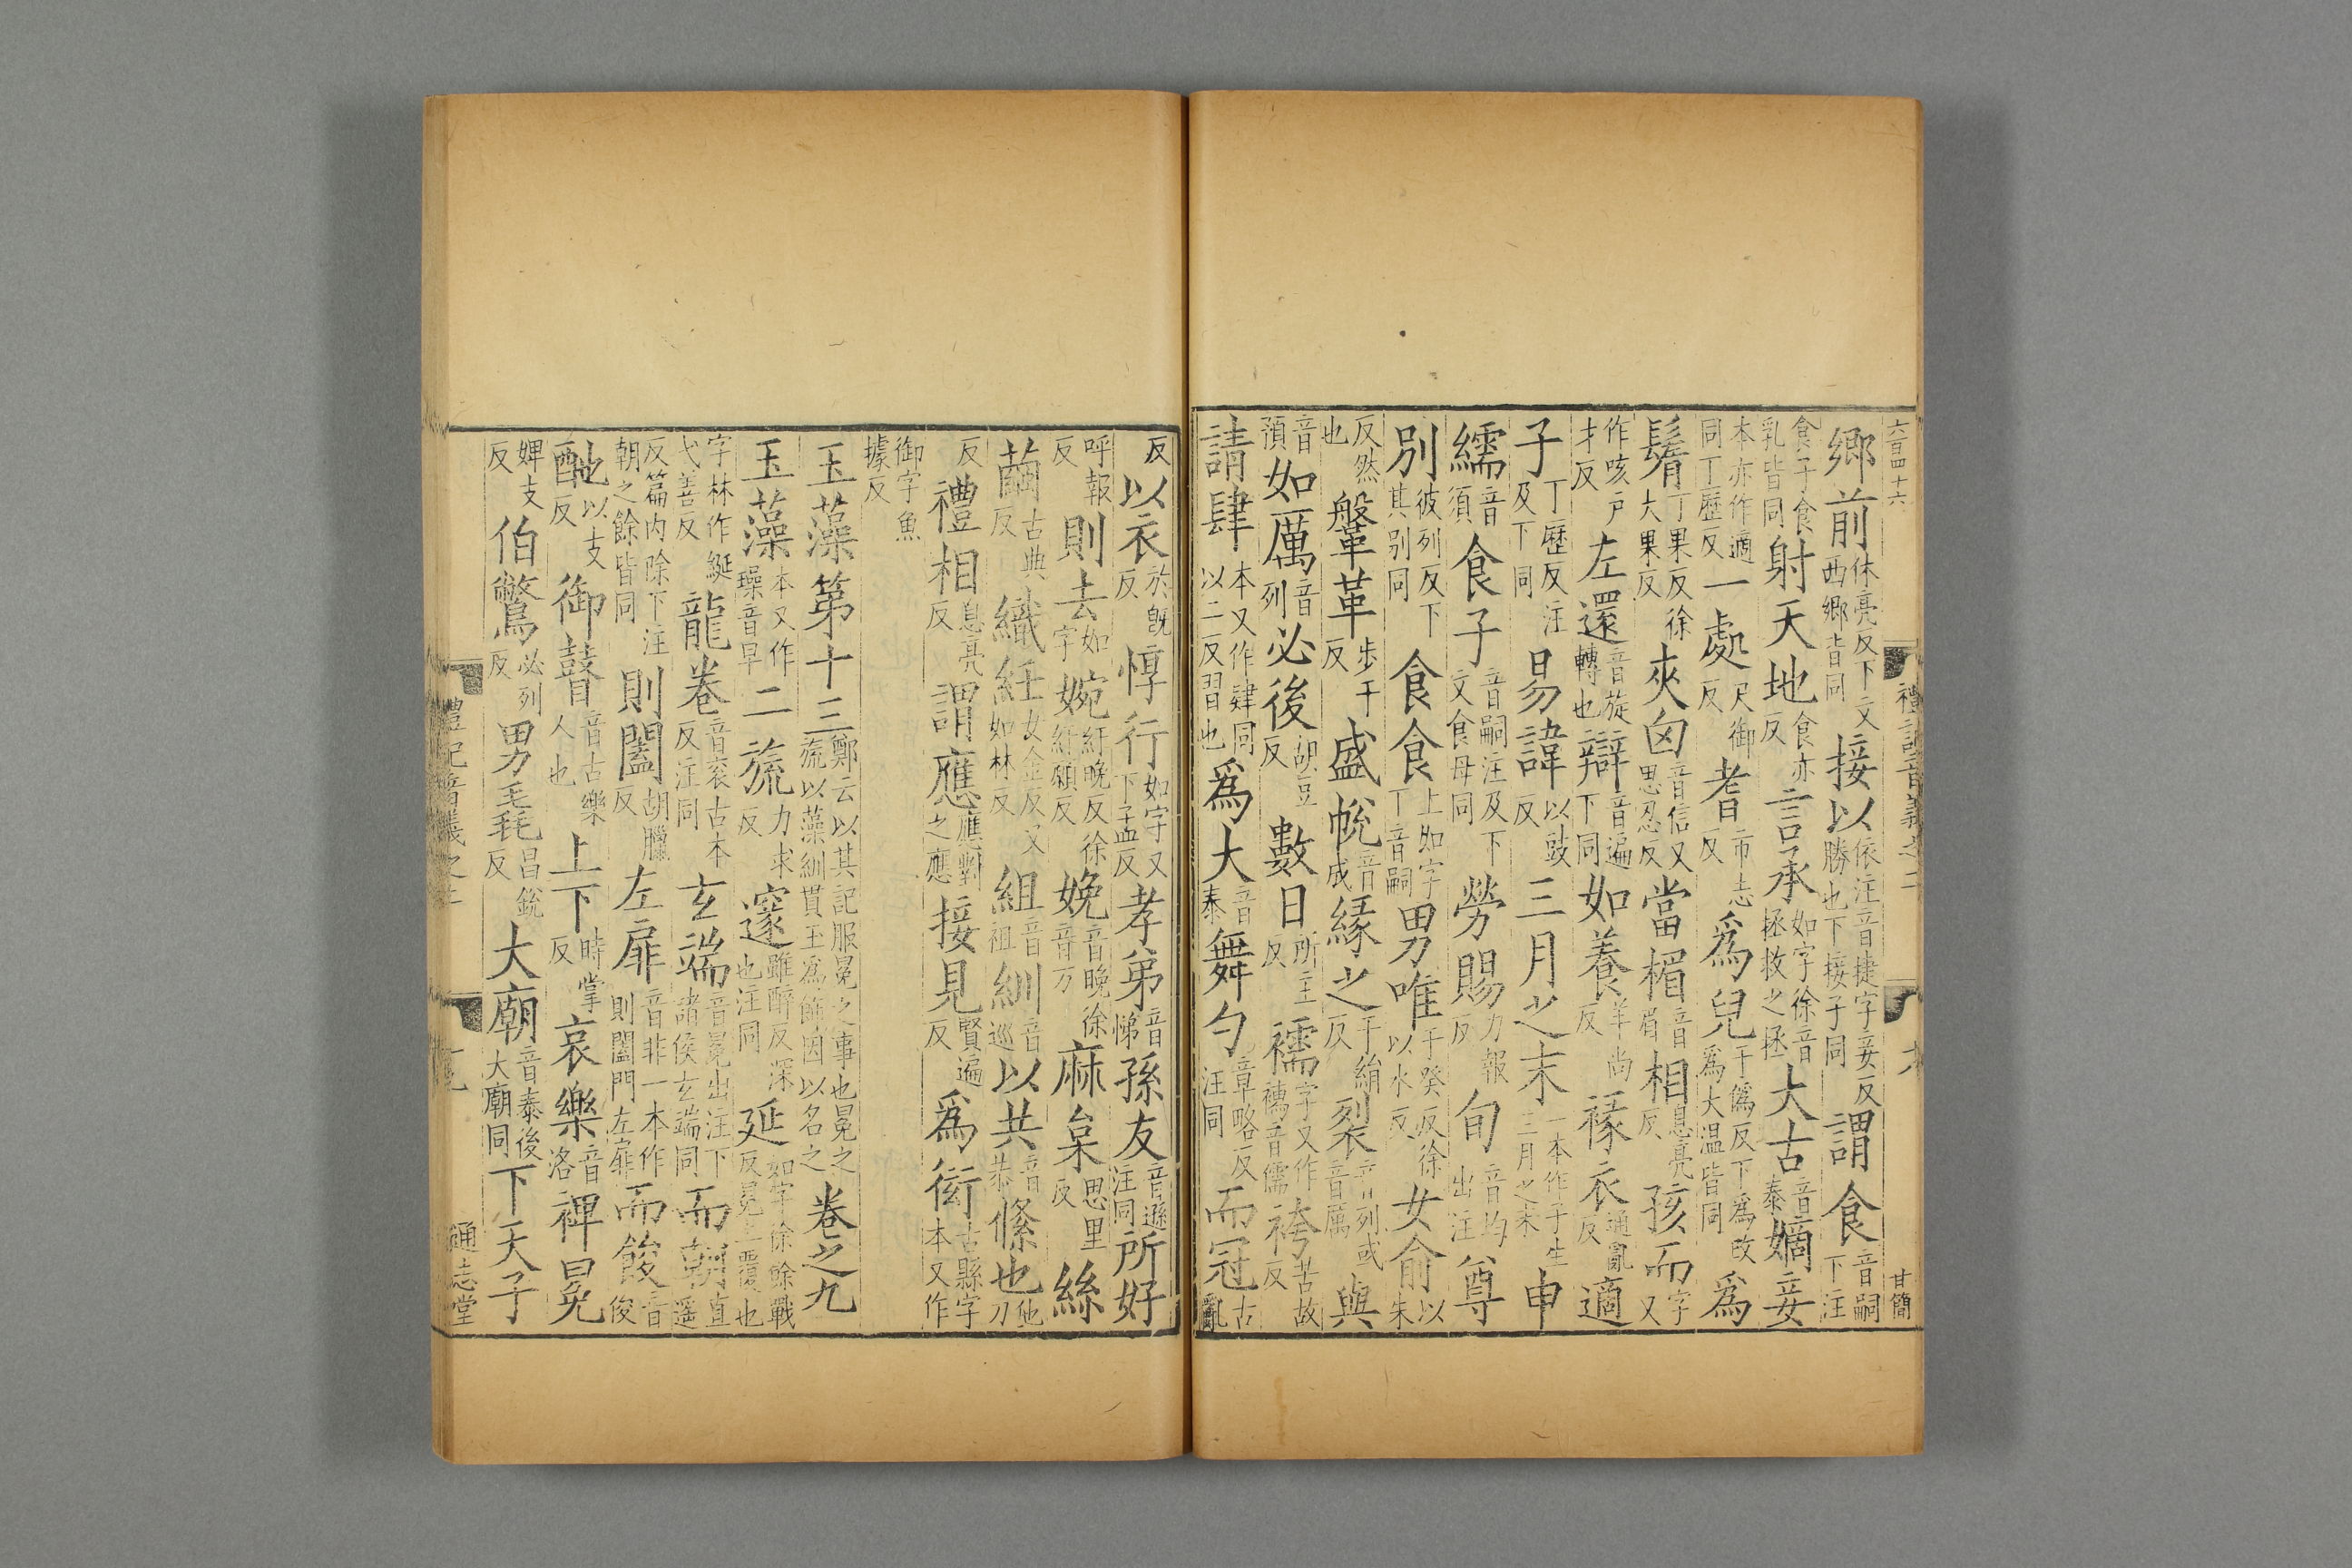 六百四十六 禮記音義之二 甘簡
鄉前休亮反下文西鄉皆同接以依注音捷字妾反勝也下接子同謂食音嗣下注
食子食乳皆同射天地食亦反言承如字徐音拯救之拯大古音泰嫡妾
本亦作適同丁歷反一處尺御反耆市志反爲兒于僞反下爲改爲大温皆同爲
鬌丁果反徐大果反夾囟音信又思忍反當楣音眉相息亮反孩而字又
作咳戶才反左還音旋轉也辯音遍下同如養羊尚反褖衣通亂反適
子丁歷反注及下同易諱以豉反三月之末一本作子生三月之末申
繻音須食子音嗣注及下文食母同勞賜力報反旬音均出注尊
別彼列反下其別同食食上如字丁音嗣男唯于癸反徐以水反女俞以朱
反然也鞶革步干反盛帨音成緣之于絹反裂音列或音厲與
音預如厲音列必後胡豆反數日所主反襦字又作𧟌音儒袴苦故反
請肄本又作肆同以二反習也爲大音泰舞勺章略反注同而冠古亂
反以衣於既反惇行如字又下孟反孝弟音悌孫友音遜注同所好
呼報反則去如字婉紆晚反徐紆願反娩音晚徐音万麻枲思里反絲
繭古典反織紝女金反又如林反組音祖紃音巡以共音恭絛也他刀
反禮相息亮反謂應應對之應接見賢遍反爲衒古縣字本又作
御字魚據反
玉藻第十三鄭云以其記服冕之事也冕之旒以藻紃貫玉爲飾因以名之卷之九
玉藻本又作璪音早二旒力求反邃雖醉反深也注同延如字徐餘戰反冕上覆也
字林作綖弋善反龍卷音衮古本反注同玄端音冕出注下諸侯玄端同而朝直遥
反篇内除下注朝之餘皆同則闔胡臘反左扉音非一本作則闔門左扉而餕音俊
酏以支反御瞽音古樂人也上下時掌反哀樂音洛裨冕
婢支反伯鷩必列反男毳昌銳反大廟音泰後大廟同下天子
禮記音義之二 通志堂